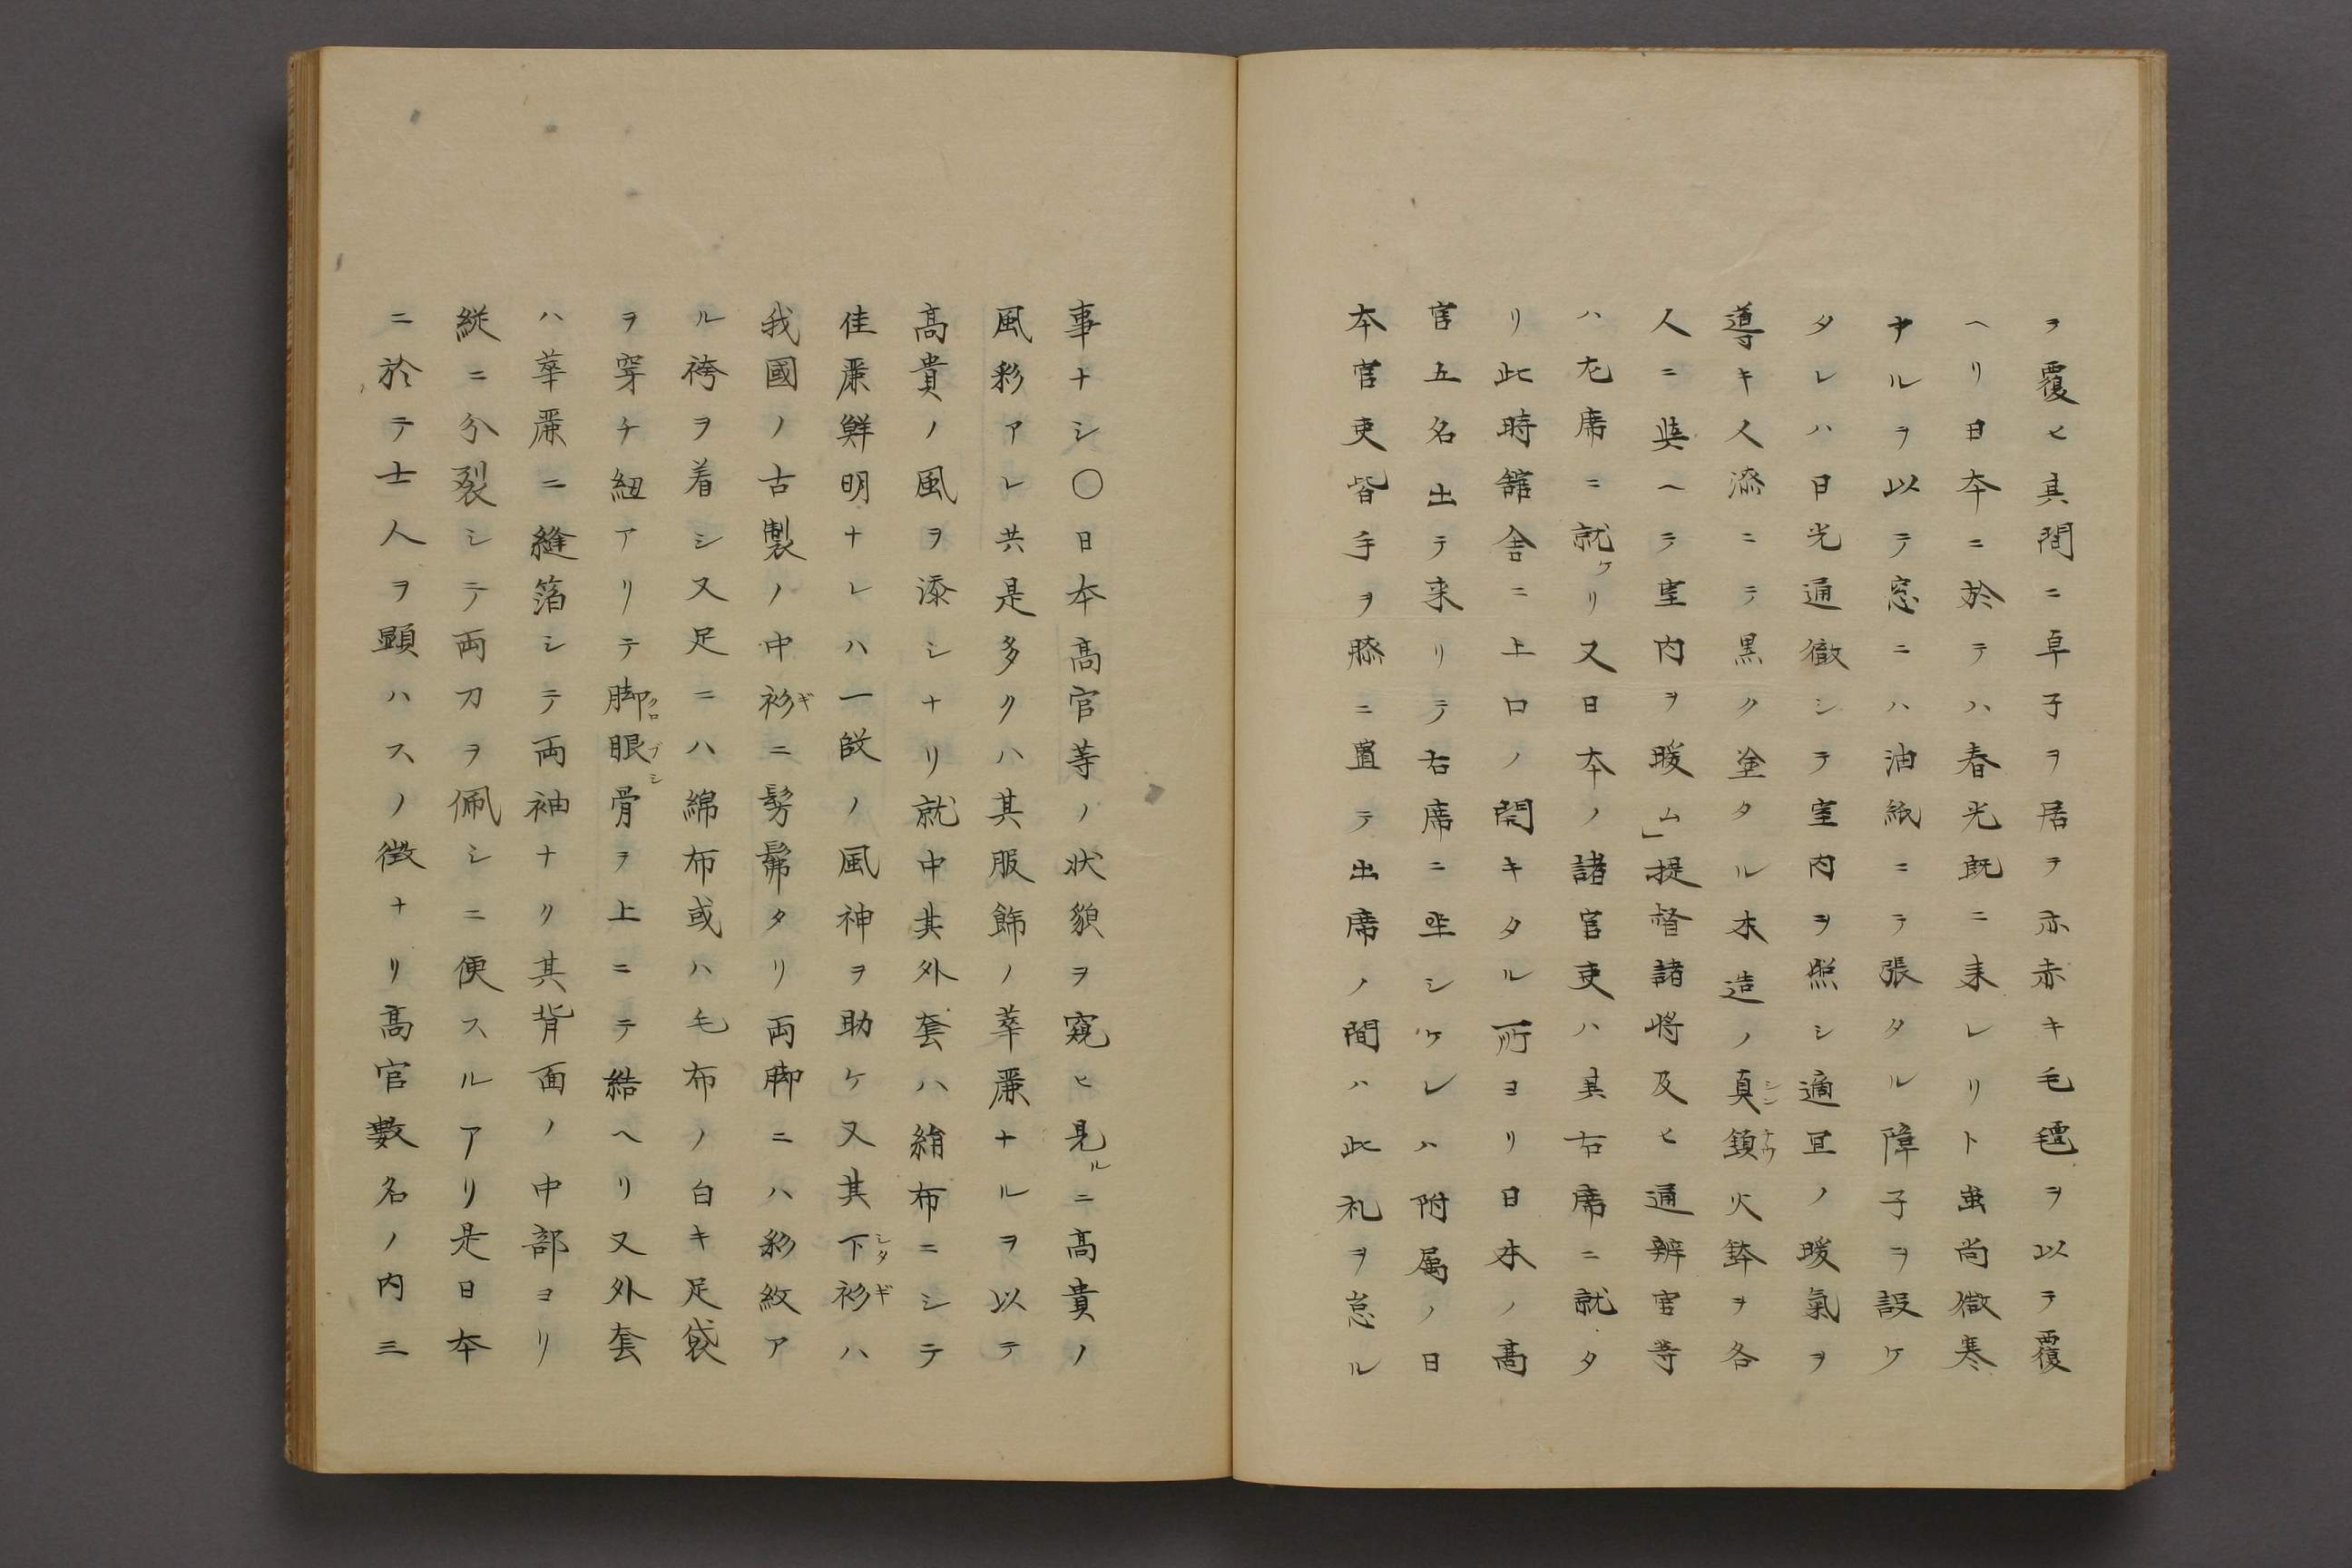 ヲ覆ヒ其間ニ卓子ヲ居ヲ亦赤キ毛氈ヲ以テ覆
ヘリ日本ニ於テハ春光既ニ来レリト虽尚微寒
ナルヲ以テ窓ニハ油紙ニテ張タル障子ヲ設ケ
タレハ日光通徹シテ室内ヲ照シ適宜ノ暖氣ヲ
導キ人添ニテ黒ク塗タル木造ノ真鍮火鉢ヲ各
シンチウ
人ニ與ヘテ室内ヲ暖ム」提督諸将及ヒ通辨官等
ハ左席ニ就ケリ又日本ノ諸官吏ハ其右席ニ就タ
リ此時舘舎ニ上口ノ開キタル所ヨリ日本ノ髙
官五名出テ来リテ右席ニ坐シケレハ附属ノ日
本官吏皆手ヲ膝ニ置テ出席ノ間ハ此礼ヲ怠ル
事ナシ〇日本髙官等ノ状貌ヲ窺ヒ見ルニ髙貴ノ
風彩アレ共是多クハ其服飾ノ華麗ナルヲ以テ
髙貴ノ風ヲ添シナリ就中其外套ハ絹布ニシテ
佳麗鮮明ナレハ一段ノ風神ヲ助ケ又其下衫ハ
シタギ
我國ノ古製ノ中衫ニ髣髴タリ両脚ニハ彩紋ア
ギ
ル袴ヲ着シ又足ニハ綿布或ハ毛布ノ白キ足袋
ヲ穿チ紐アリテ脚眼骨ヲ上ニテ結ヘリ又外套
クロブシ
ハ華麗ニ縫箔シテ両袖ナク其背面ノ中部ヨリ
縦ニ分裂シテ両刀ヲ佩シニ便スルアリ是日本
ニ於テ士人ヲ顕ハスノ徴ナリ髙官數名ノ内三